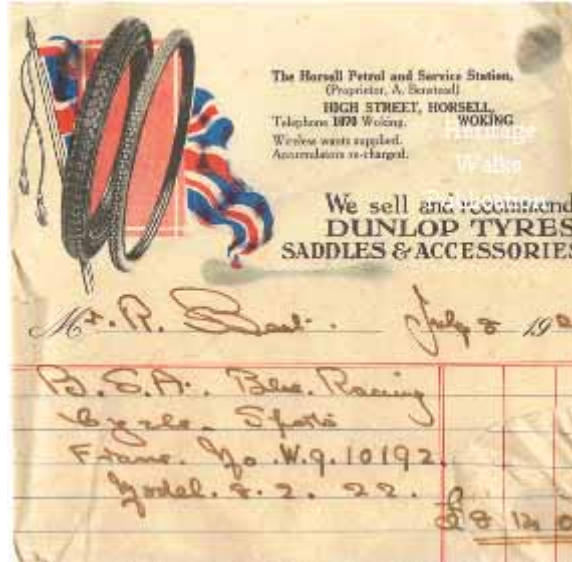 The Horsell Petrol and Service Station,
(Proprietor, A. Benstead)
HIGH STREET, HORSELL,
Telephone 1070 Woking. WOKING
Wireless wants supplied.
Accumulators re-charged.
Heritage
Walks
We sell and recommend
DUNLOP TYRES
SADDLES & ACCESSORIES
Mr. R. July 8 19
B.S.A. Blue. Racing
Cycle. Sports
Frame. No. W.9.10192.
Model. 8. 2. 22.
£8